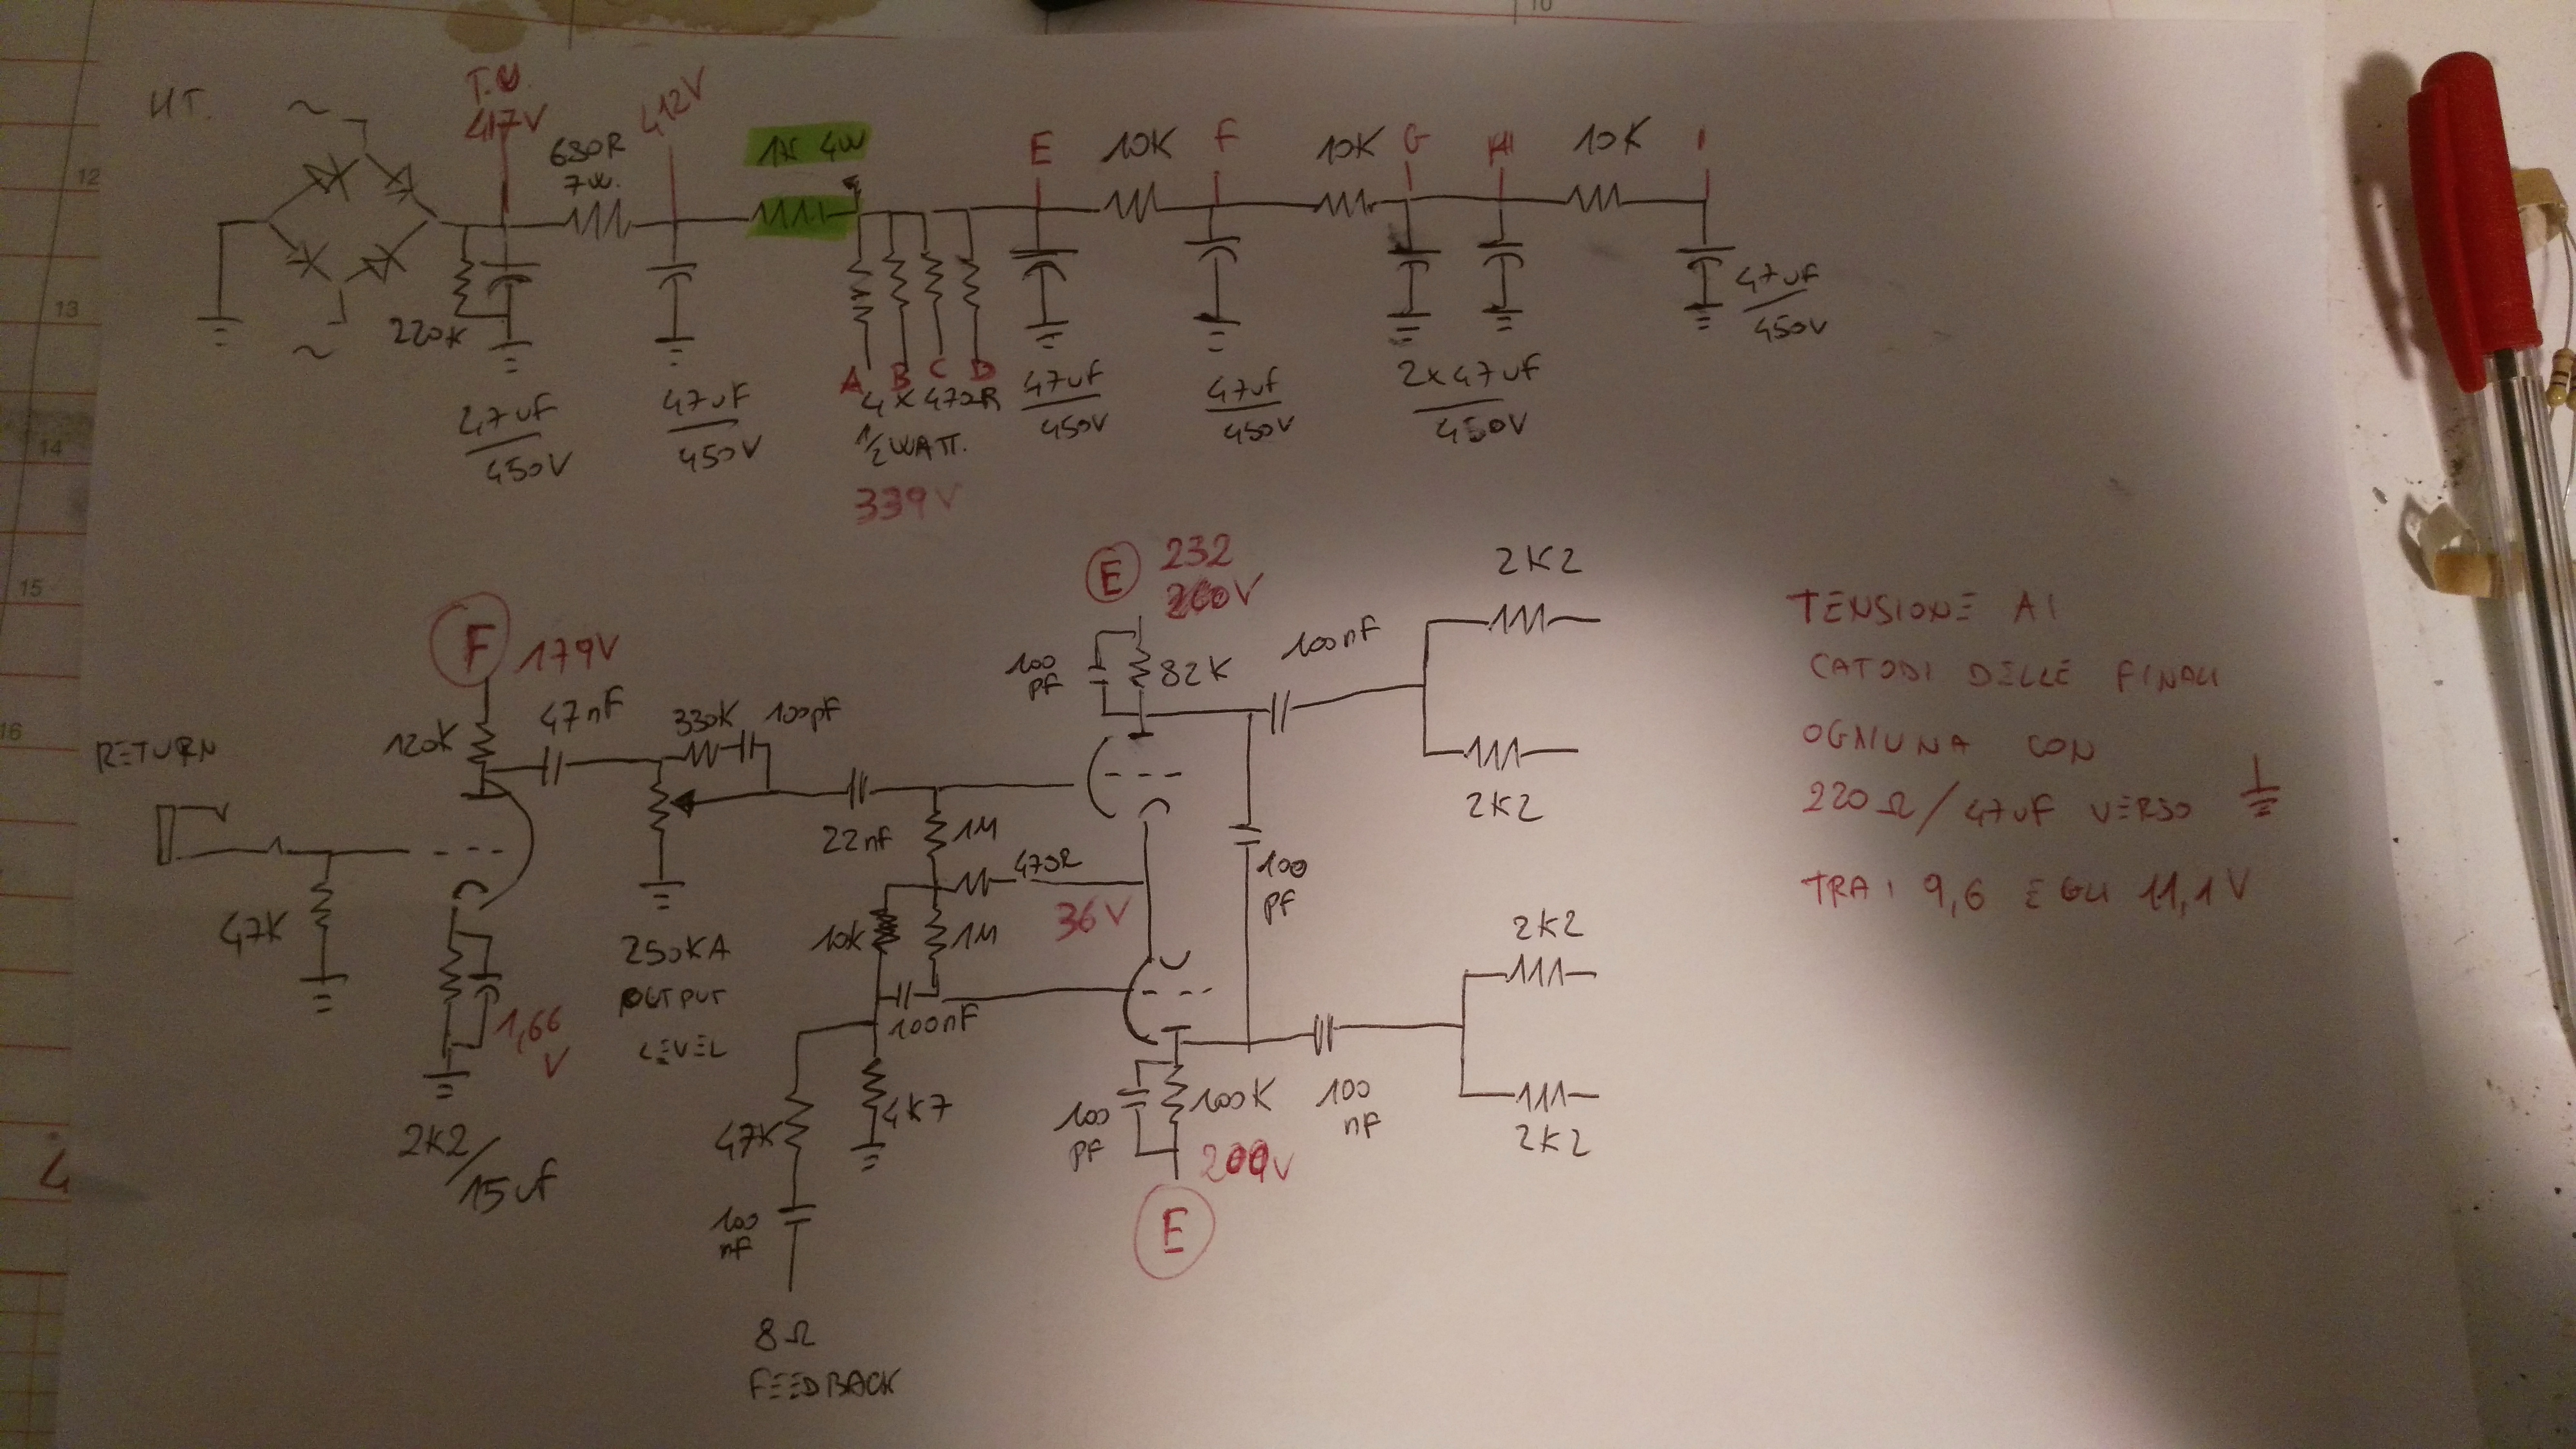 10
12
13
14
15
16
4
HT.
~
T.U.
417V
412V
680R
7W.
1K 4W
E
10K
F
10K
G
H
10K
I
220K
~
47uF
450V
47uF
450V
A B C D
4 X 470R
1/2 WATT.
339V
47uF
450V
47uF
450V
2x47uF
450V
47uF
450V
E
232
V
100
PF
82K
100nF
2K2
2K2
F
179V
RETURN
120K
47nF
330K
100pF
22nF
1M
470R
36V
47K
10K
1M
100nF
100
PF
250KA
OUTPUT
LEVEL
1,66
V
2K2/15uF
47K
4K7
100
nF
8Ω
FEEDBACK
100
PF
100K
100
nF
E
2K2
2K2
TENSIONE AI
CATODI DELLE FINALI
OGNIUNA CON
220Ω/47uF VERSO
TRA I 9,6 E GLI 11,1V